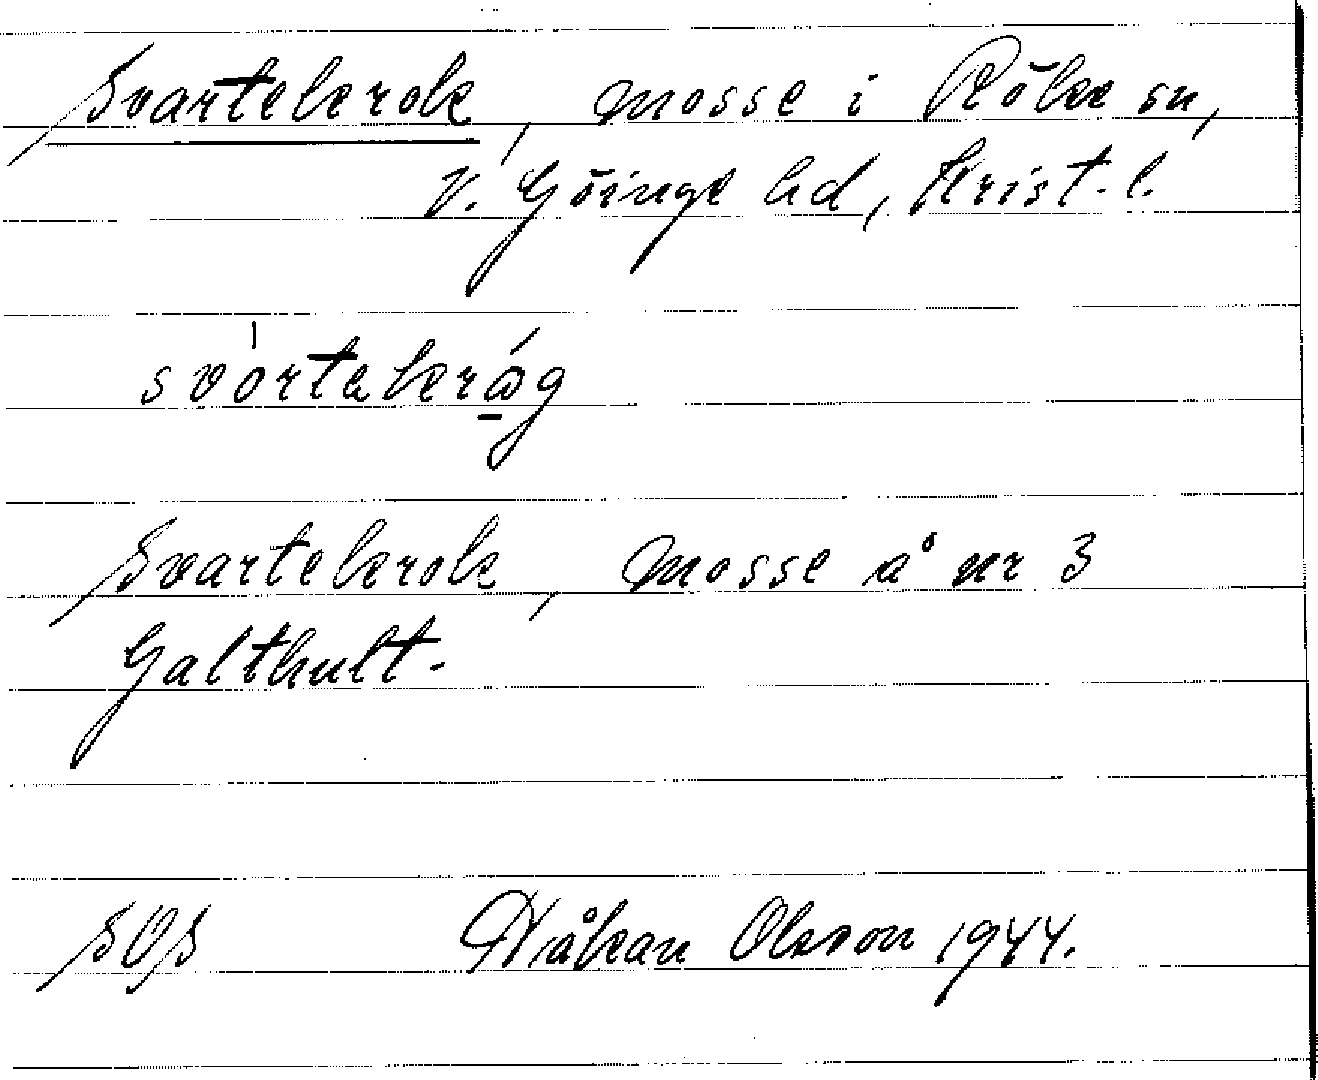 Svartekrok, mosse i Röke sn,
V. Göinge hd, Krist. l.
svàrtakrǻg
Svartekrok, mosse å nr 3
Galthult.
SOS Håkan Olsson 1944.